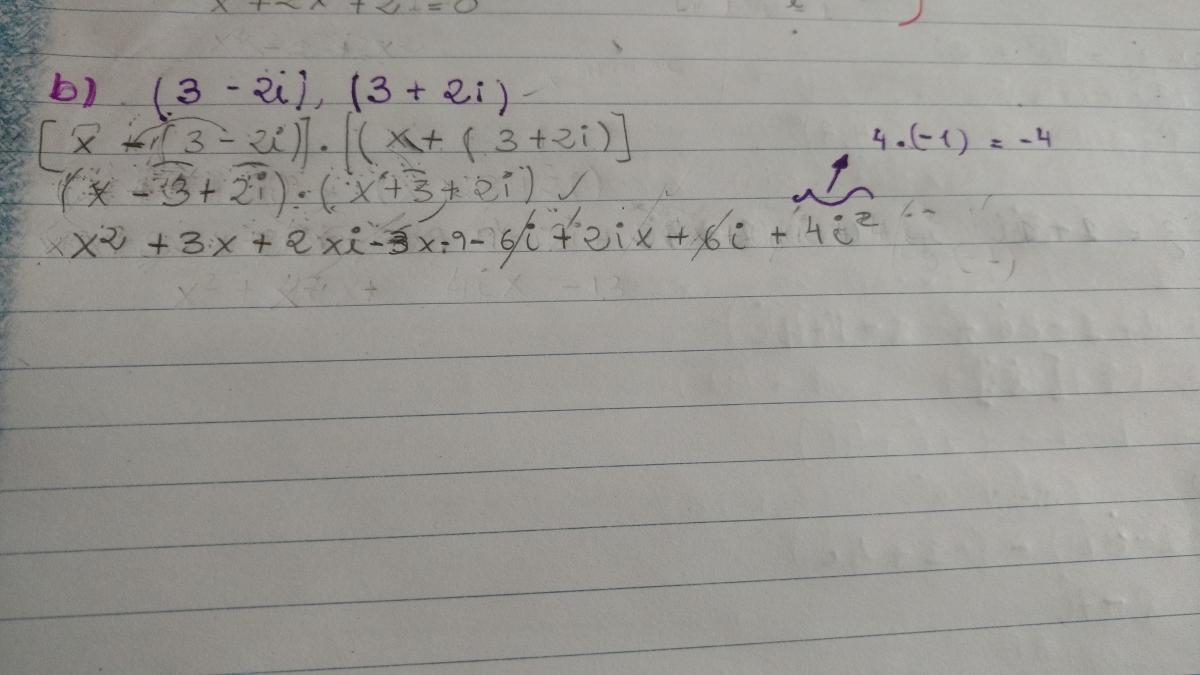 x² + 2x + 2 = 0
b) (3 - 2i), (3 + 2i)
[x - (3 - 2i)] · [(x + (3 + 2i)]
4 · (-1) = -4
(x - 3 + 2i) · (x + 3 + 2i) ✓
x² + 3x + 2xi - 3x - 9 - 6i + 2ix + 6i + 4i²